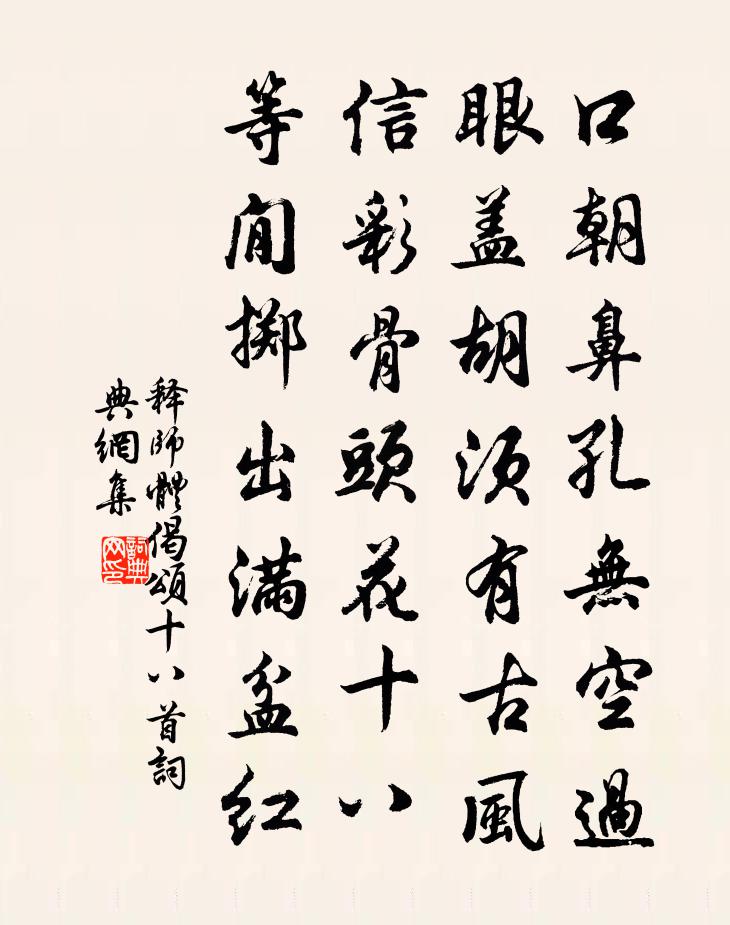 口朝鼻孔無空過
眼盖胡須有古風
信彩骨頭花十八
等閒擲出滿盆紅
释師體偈頌十八首詞
典網集
詞典網印